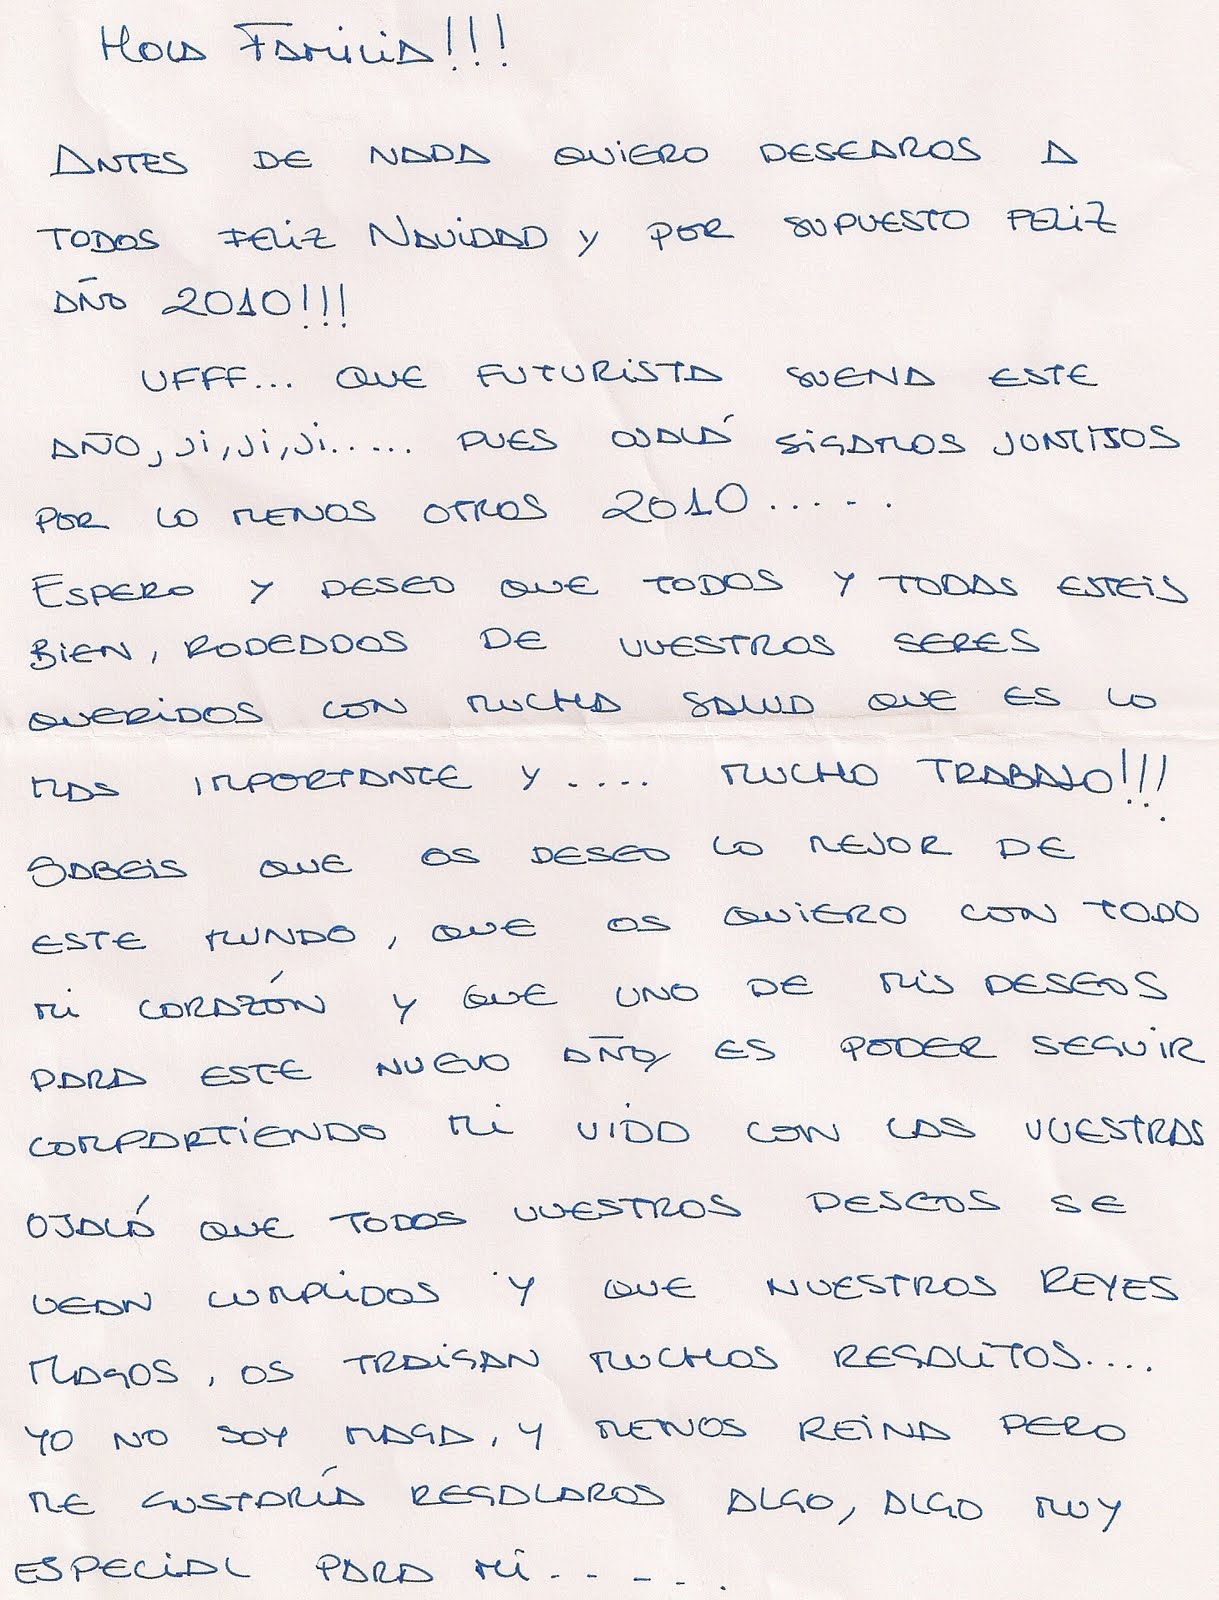 Hola Familia!!!
Antes de nada quiero desearos a
todos feliz Navidad y por supuesto feliz
año 2010!!!
Ufff... que futurista suena este
año, ji, ji, ji..... pues ojalá sigamos juntitos
por lo menos otros 2010.....
Espero y deseo que todos y todas esteis
bien, rodeados de vuestros seres
queridos con mucha salud que es lo
mas importante y .... mucho trabajo!!!
Sabeis que os deseo lo mejor de
este mundo, que os quiero con todo
mi corazón y que uno de mis deseos
para este nuevo año, es poder seguir
compartiendo mi vida con las vuestras
Ojalá que todos vuestros deseos se
vean cumplidos y que nuestros Reyes
Magos, os traigan muchos regalitos....
Yo no soy maga, y menos reina pero
me gustaría regalaros algo, algo muy
especial para mi.....